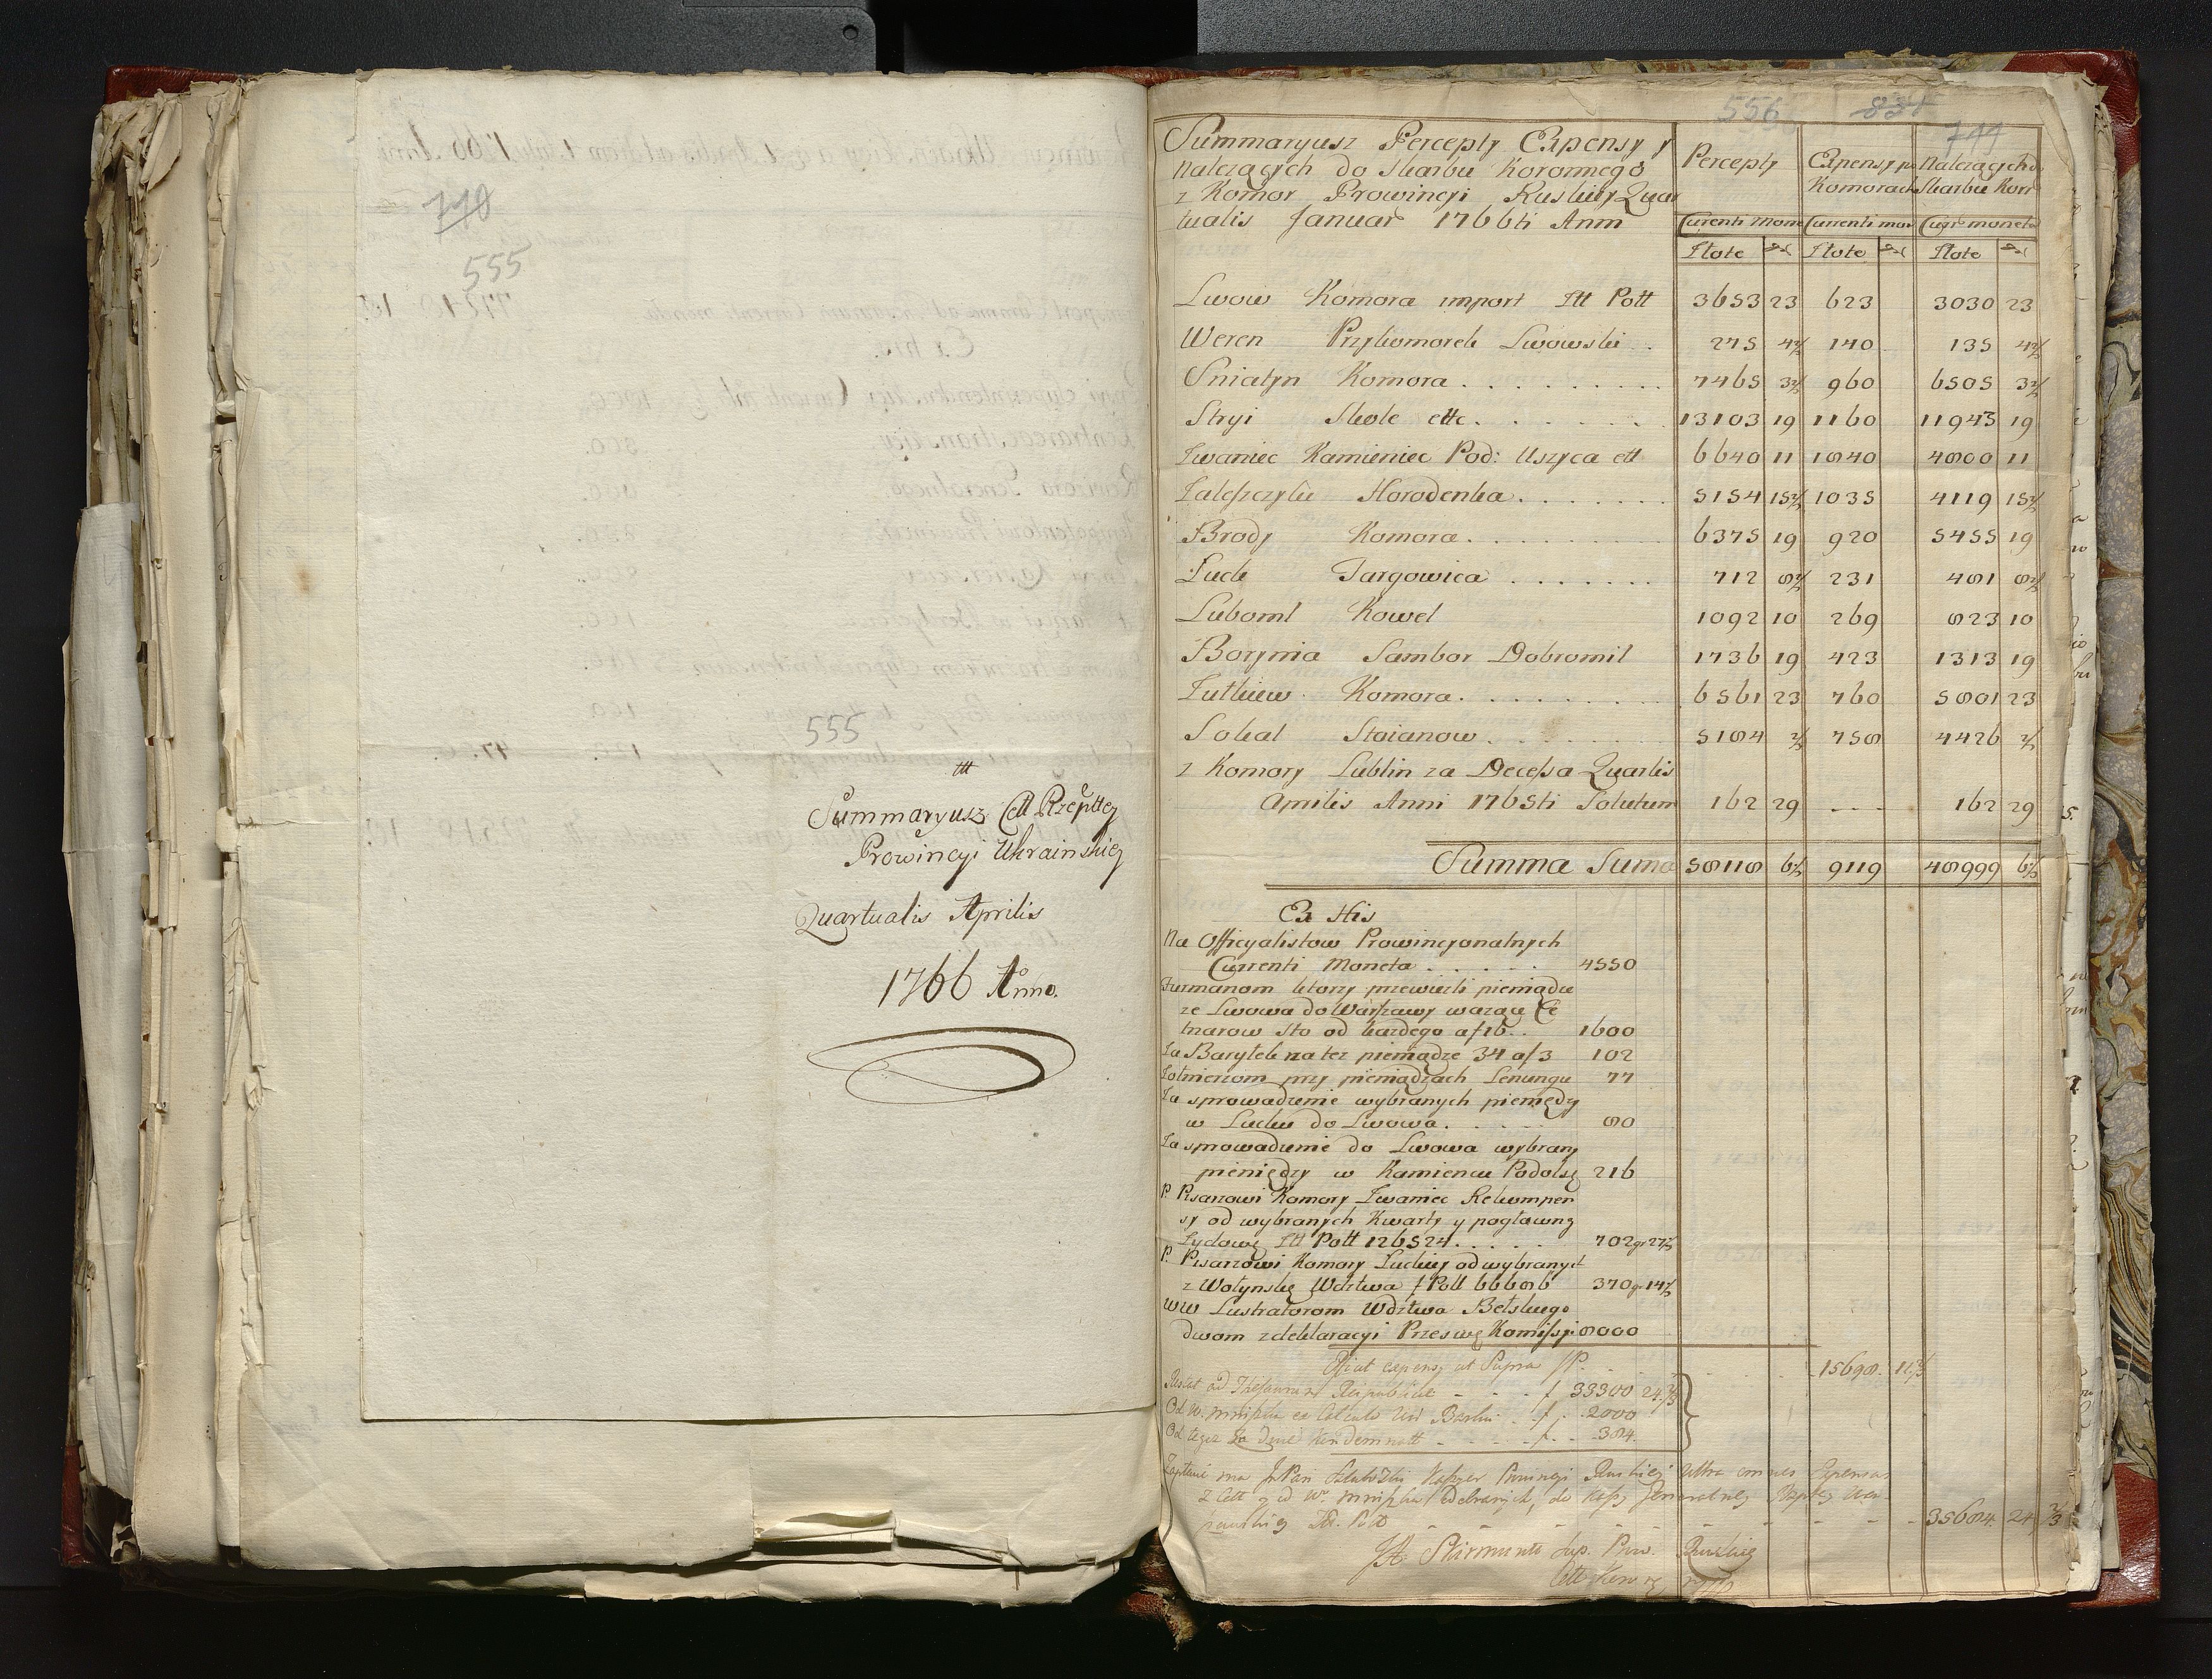 770
555
555
Summaryusz Cell Rzepttey
Prowincyi Ukrainskiey
Quartualis Aprilis
1766 Anno.
556 831
744
Summaryusz Percepty Expensy y
Należących do Skarbu Koronnego
z Komor Prowincyi Ruskiey Quar
tualis Januar 1766ti Anni
Percepty Expensy po Komorach Należących do Skarbu Kor
Curenti Mone Currenti mon Cur moneta
Złote gr Złote gr Złote gr
Lwow Komora import Ztt Poll 3653 23 623 3030 23
Weren Przykomorek Lwowski 275 4 2/3 140 135 4 2/3
Sniatyn Komora 7465 3 2/3 960 6505 3 2/3
Stryi Skole ettc. 13103 19 1160 11943 19
Zwaniec Kamieniec Pod: Uszyca ett 6640 11 1840 4800 11
Zaleszczyki Horodenka 5154 15 2/3 1035 4119 15 2/3
Brody Komora 6375 19 920 5455 19
Łuck Targowica 712 8 2/3 231 481 8 2/3
Luboml Kowel 1092 10 269 823 10
Borynia Sambor Dobromil 1736 19 423 1313 19
Zułkiew Komora 6561 23 760 5801 23
Sokal Stoianow 5184 2/3 758 4426 2/3
z Komory Lublin za Decessa Quartis
Aprilis Anni 1765ti Solutum 162 29 --- 162 29
Summa Suma 58118 6 1/3 9119 48999 6 1/3
Ex His
Na Officyalistow Prowincyonalnych
Currenti Moneta 4550
Furmanom ktorzy przewiezli pieniądze
ze Lwowa do Warszawy wazące Ce
tnarow sto od kazdego a f 16 1600
Za Baryłek na tez pieniądze 34 a f 3 102
Zołnierzom przy pieniądzach Lenungu 77
Za sprowadzenie wybranych pieniędzy
w Łucku do Lwowa 80
Za sprowadzenie do Lwowa wybrany
pieniędzy w Kamiencu Podolsę 216
P. Pisarzowi Komory Zwaniec Rekompen
sy od wybranych Kwarty y pogłowng
Zydowę Ztt Poll 126524 702 gr 27 2/3
P. Pisarzowi Komory Łuckiey od wybranych
z Wołynskę Wdztwa f Poll 66686 370 gr 14 2/3
WW Lustratorom Wdztwa Bełskiego
dwom z deklaracyi Przeswę Komissyi 8000
Efficit expens ut Supra 15698. 12 1/3
Restat ad Thesaurum Reipublicae f 33300 24 2/3
Od W. Mniszka ex Calculo f 2000
Od tegoż f 384
Prowincyi Ruskiey ultra omnes Expensas
35684. 24 2/3
Ruskiey